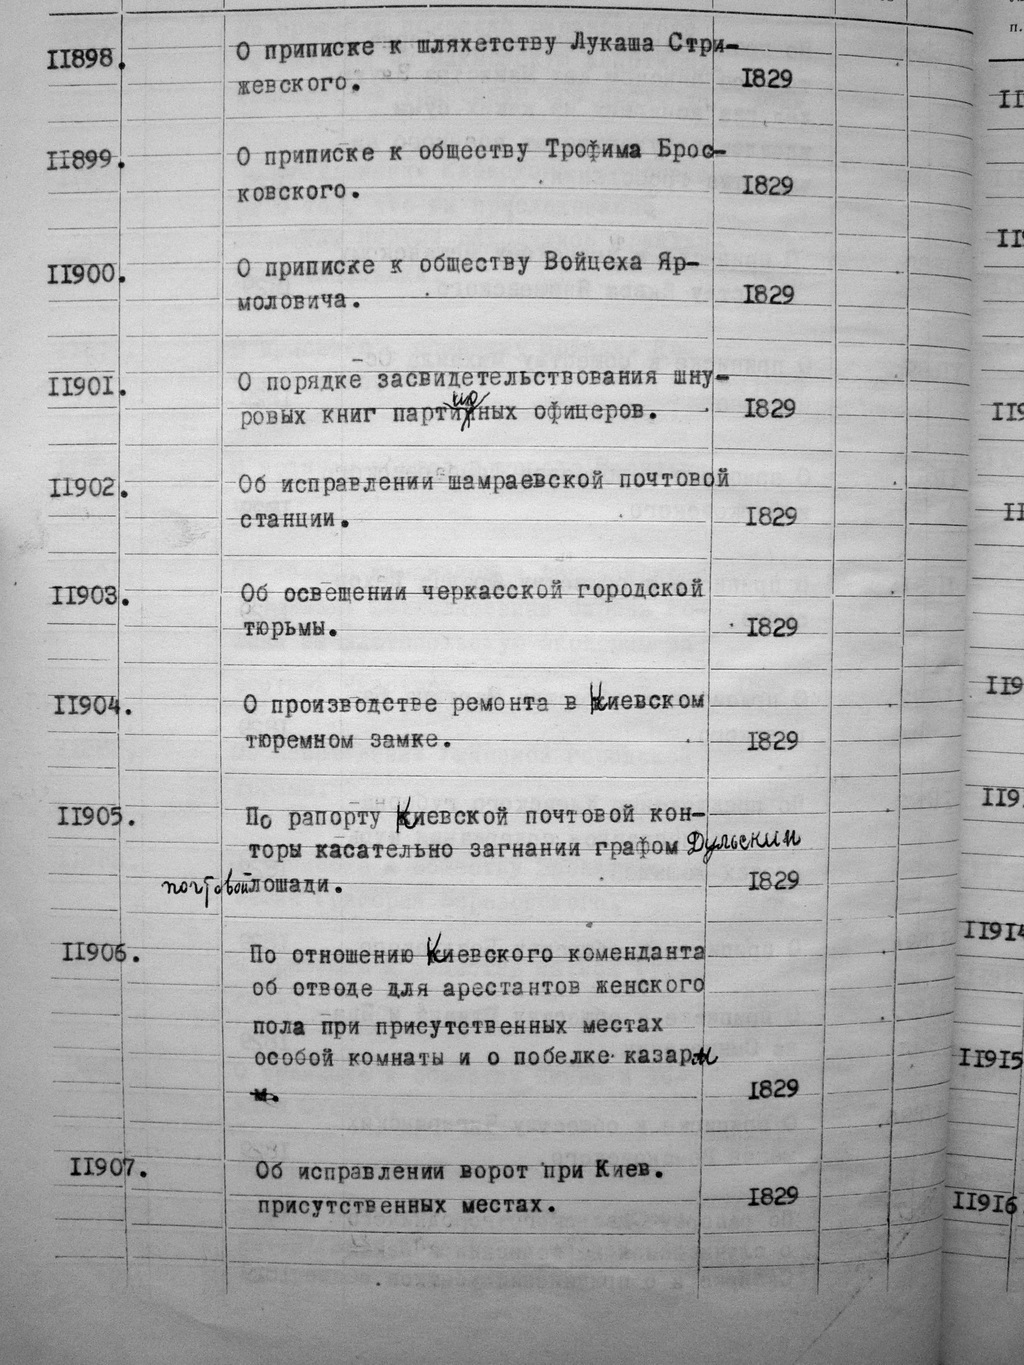 II898. О приписке к шляхетству Лукаша Стри-
жевского. I829
II899. О приписке к обществу Трофима Брос-
ковского. I829
II900. О приписке к обществу Войцеха Яр-
моловича. I829
II90I. О порядке засвидетельствования шну-
ровых книг партионных офицеров. I829
II902. Об исправлении шамраевской почтовой
станции. I829
II903. Об освещении черкасской городской
тюрьмы. I829
II904. О производстве ремонта в Киевском
тюремном замке. I829
II905. По рапорту Киевской почтовой кон-
торы касательно загнании графом Дульским
почтовой лошади. I829
II906. По отношению Киевского коменданта
об отводе для арестантов женского
пола при присутственных местах
особой комнаты и о побелке казарм
м. I829
II907. Об исправлении ворот при Киев.
присутственных местах. I829
п.
II
II9
II9
II
II9
II9
II9I4
II9I5
II9I6